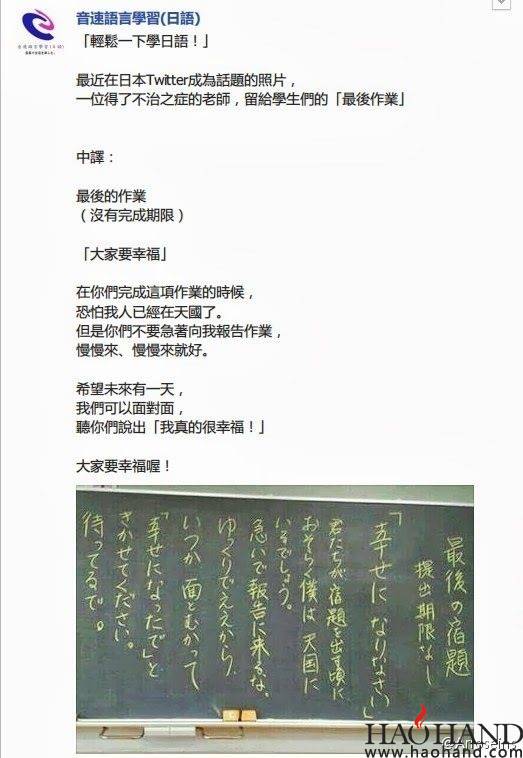 音速語言學習(日語)
「輕鬆一下學日語！」
最近在日本Twitter成為話題的照片，
一位得了不治之症的老師，留給學生們的「最後作業」
中譯：
最後的作業
（沒有完成期限）
「大家要幸福」
在你們完成這項作業的時候，
恐怕我人已經在天國了。
但是你們不要急著向我報告作業，
慢慢來、慢慢來就好。
希望未來有一天，
我們可以面對面，
聽你們說出「我真的很幸福！」
大家要幸福喔！
最後の宿題
提出期限なし
「幸せになりなさい」
君たちが宿題を出す頃に
おそらく僕は天国に
いるでしょう。
急いで報告に来るな。
ゆっくりでええから
いつか面とむかって
「幸せになったで」と
きかせてください。
待ってるで。
HAOHAND
www.haohand.com